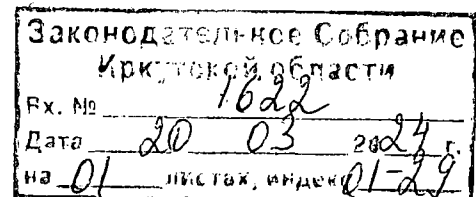 Законодательное Собрание
Иркутской области
Вх. № 1622
Дата 20 03 2024 г.
на 01 листах, индекс 01-29